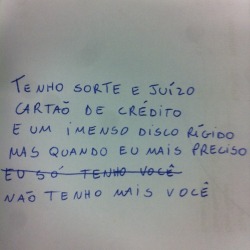 TENHO SORTE E JUÍZO
CARTÃO DE CRÉDITO
E UM IMENSO DISCO RÍGIDO
MAS QUANDO EU MAIS PRECISO
EU SÓ TENHO VOCÊ
NÃO TENHO MAIS VOCÊ